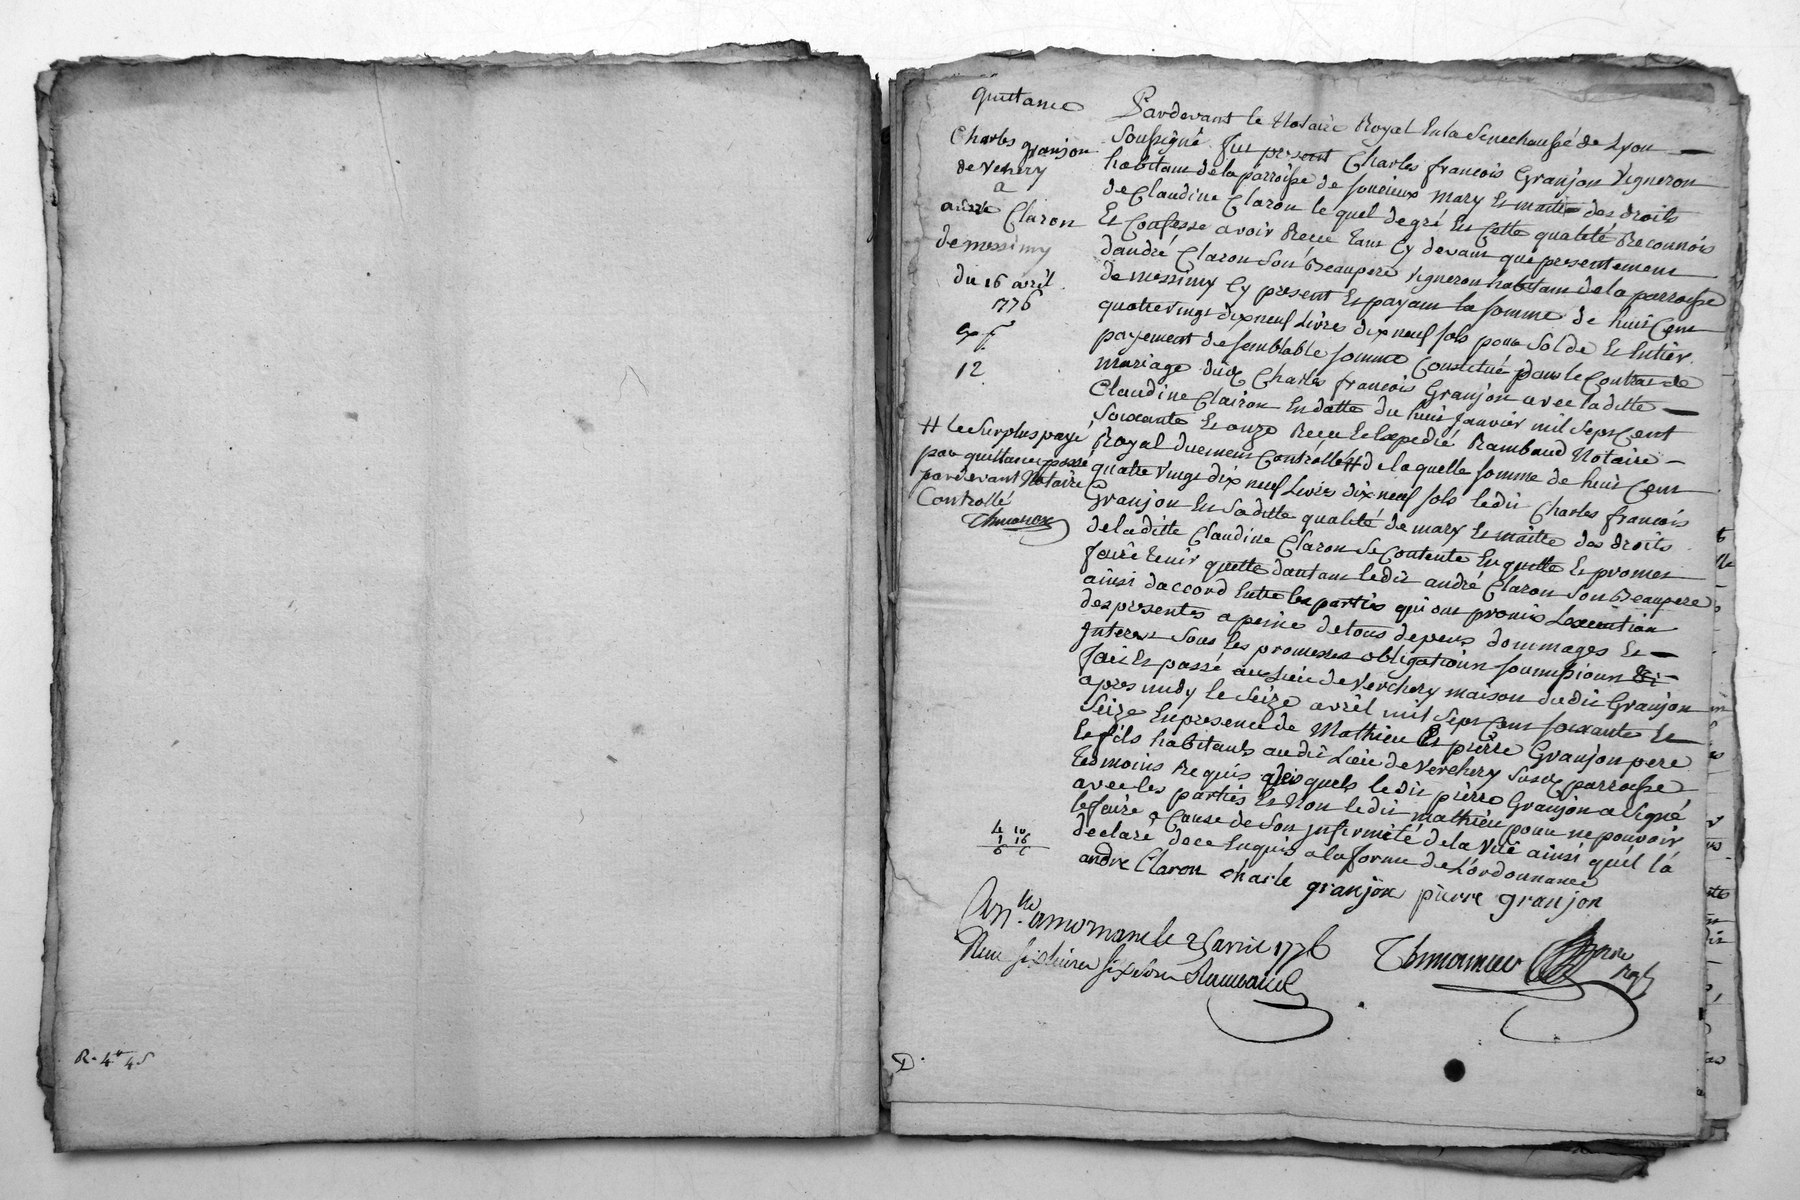 R. 4º 45
quittance
Charles granjon
de Verchery
a
andré Claron
de messimy
du 16 avril
1776
exp.
12
# Le Surplus payé
par quittance passé
pardevant Notaire
Controllé
Pardevant le Notaire Royal En la Senechaussé de Lyon
Soussigné fut present Charles francois Granjon Vigneron
habitant de la parroisse de soucieux mary Et maitre des droits
de Claudine Claron le quel de gré En Cette qualité Reconnois
Et Confesse avoir Receu tant Cy devant que presentement
dandré Claron Son Beaupere Vigneron habitant de la parroisse
de messimy Cy present Et payant la Somme de huit Cent
quatre vingt dix neuf Livre dix neuf Sols pour Solde Et Entier
payement de semblable somme Constitué dans le Contrat de
mariage dud. Charles francois Granjon avec laditte
Claudine Clairon En datte du huit Janvier mil Sept Cent
Soixante Et onze Receu Et Expedié Rambaud Notaire
Royal duement Controllé # de laquelle somme de huit Cent
quatre vingt dix neuf Livres dix neuf Sols ledit Charles francois
Granjon En Saditte qualité de mary Et maitre des droits
de laditte Claudine Claron Se Contente En quitte Et promet
faire tenir quitte dautant ledit andré Claron Son Beaupere
ainsi daccord Entre les parties qui ont promis Lexecution
des presentes a peine de tous depens dommages Et
Interest Sous les promesses obligations soumissions
fait Et passé au Lieu de Verchery maison dudit Granjon
apres midy le Seize avril mil Sept Cent soixante Et
Seize En presence de Mathieu Et pierre Granjon pere
Et fils habitants audit Lieu de Verchery Susd. parroisse
temoins Requis desquels ledit pierre Granjon a Signé
avec les parties Et Non ledit mathieu pour ne pouvoir
le faire a Cause de Son Infirmité de la Vüe ainsi qu'il l'a
declaré de ce Enquis a la forme de L'ordonnance
andre Claron charle granjon pierre granjon
4 10
1 16
6 6
a mornant le 25 avril 1776
Receu six livres six sous Rambaud
Notre
Royl
D